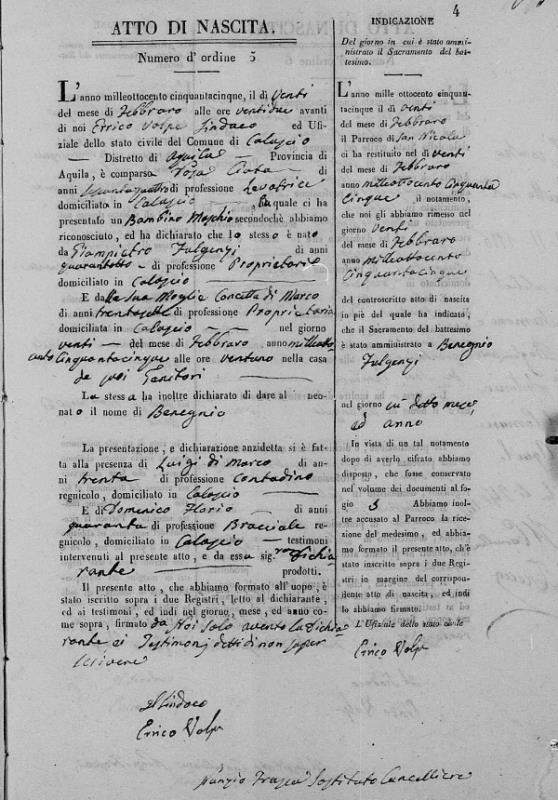 4
ATTO DI NASCITA.
Numero d'ordine 5
L'anno milleottocento cinquantacinque, il dì venti
del mese di Febbraro alle ore ventidue avanti
di noi Errico Volpe Sindaco ed Ufi-
ziale dello stato civile del Comune di Calascio
Distretto di Aquila Provincia di
Aquila, è comparsa Rosa
anni di professione Levatrice
domiciliata in Calascio, la quale ci ha
presentato un Bambino Maschio secondochè abbiamo
riconosciuto, ed ha dichiarato che lo stesso è nato
da Giampietro Fulgenzj di anni
quarantotto di professione Proprietario
domiciliato in Calascio
E dalla sua Moglie Concetta di Marco
di anni trentasette di professione Proprietaria
domiciliata in Calascio nel giorno
venti del mese di Febbraro anno milleotto
cento Cinquantacinque alle ore ventuno nella casa
de suoi Genitori
La stessa ha inoltre dichiarato di dare al neo-
nato il nome di Benegnio
La presentazione, e dichiarazione anzidetta si è fat-
ta alla presenza di Luigi di Marco di an-
ni trenta di professione Contadino
regnicolo, domiciliato in Calascio
E di Domenico Florio di anni
quaranta di professione Bracciale re-
gnicolo, domiciliato in Calascio testimoni
intervenuti al presente atto, e da essa sig.ra Dichia
rante prodotti.
Il presente atto, che abbiamo formato all'uopo, è
stato iscritto sopra i due Registri, letto al dichiarante,
ed ai testimoni, ed indi nel giorno, mese, ed anno co-
me sopra, firmato da Noi solo avento la Dichia
rante, ei Testimonj detto di non saper
scrivere
Il Sindaco
Errico Volpe
Sostituto Cancelliere
INDICAZIONE
Del giorno in cui è stato ammi-
nistrato il Sacramento del bat-
tesimo.
L'anno mille ottocento cinquan-
tacinque il dì venti
del mese di Febbraro
il Parroco di San Nicola
ci ha restituito nel dì venti
del mese di Febbraro
anno milleottocento Cinquanta
Cinque il notamento,
che noi gli abbiamo rimesso nel
giorno venti
del mese di Febbraro
anno milleottocento
Cinquantacinque
del controscritto atto di nascita
in piè del quale ha indicato,
che il Sacramento del battesimo
è stato amministrato a Benegnio
Fulgenzj
nel giorno cui detto mese,
ed anno
In vista di un tal notamento
dopo di averlo cifrato abbiamo
disposto, che fosse conservato
nel volume dei documenti al fo-
gio 5 Abbiamo inol-
tre accusato al Parroco la rice-
zione del medesimo, ed abbia-
mo formato il presente atto, ch'è
stato inscritto sopra i due Regi-
stri in margine del corrispon-
dente atto di nascita, ed indi
lo abbiamo firmato.
L'Ufiziale dello stato civile
Errico Volpe